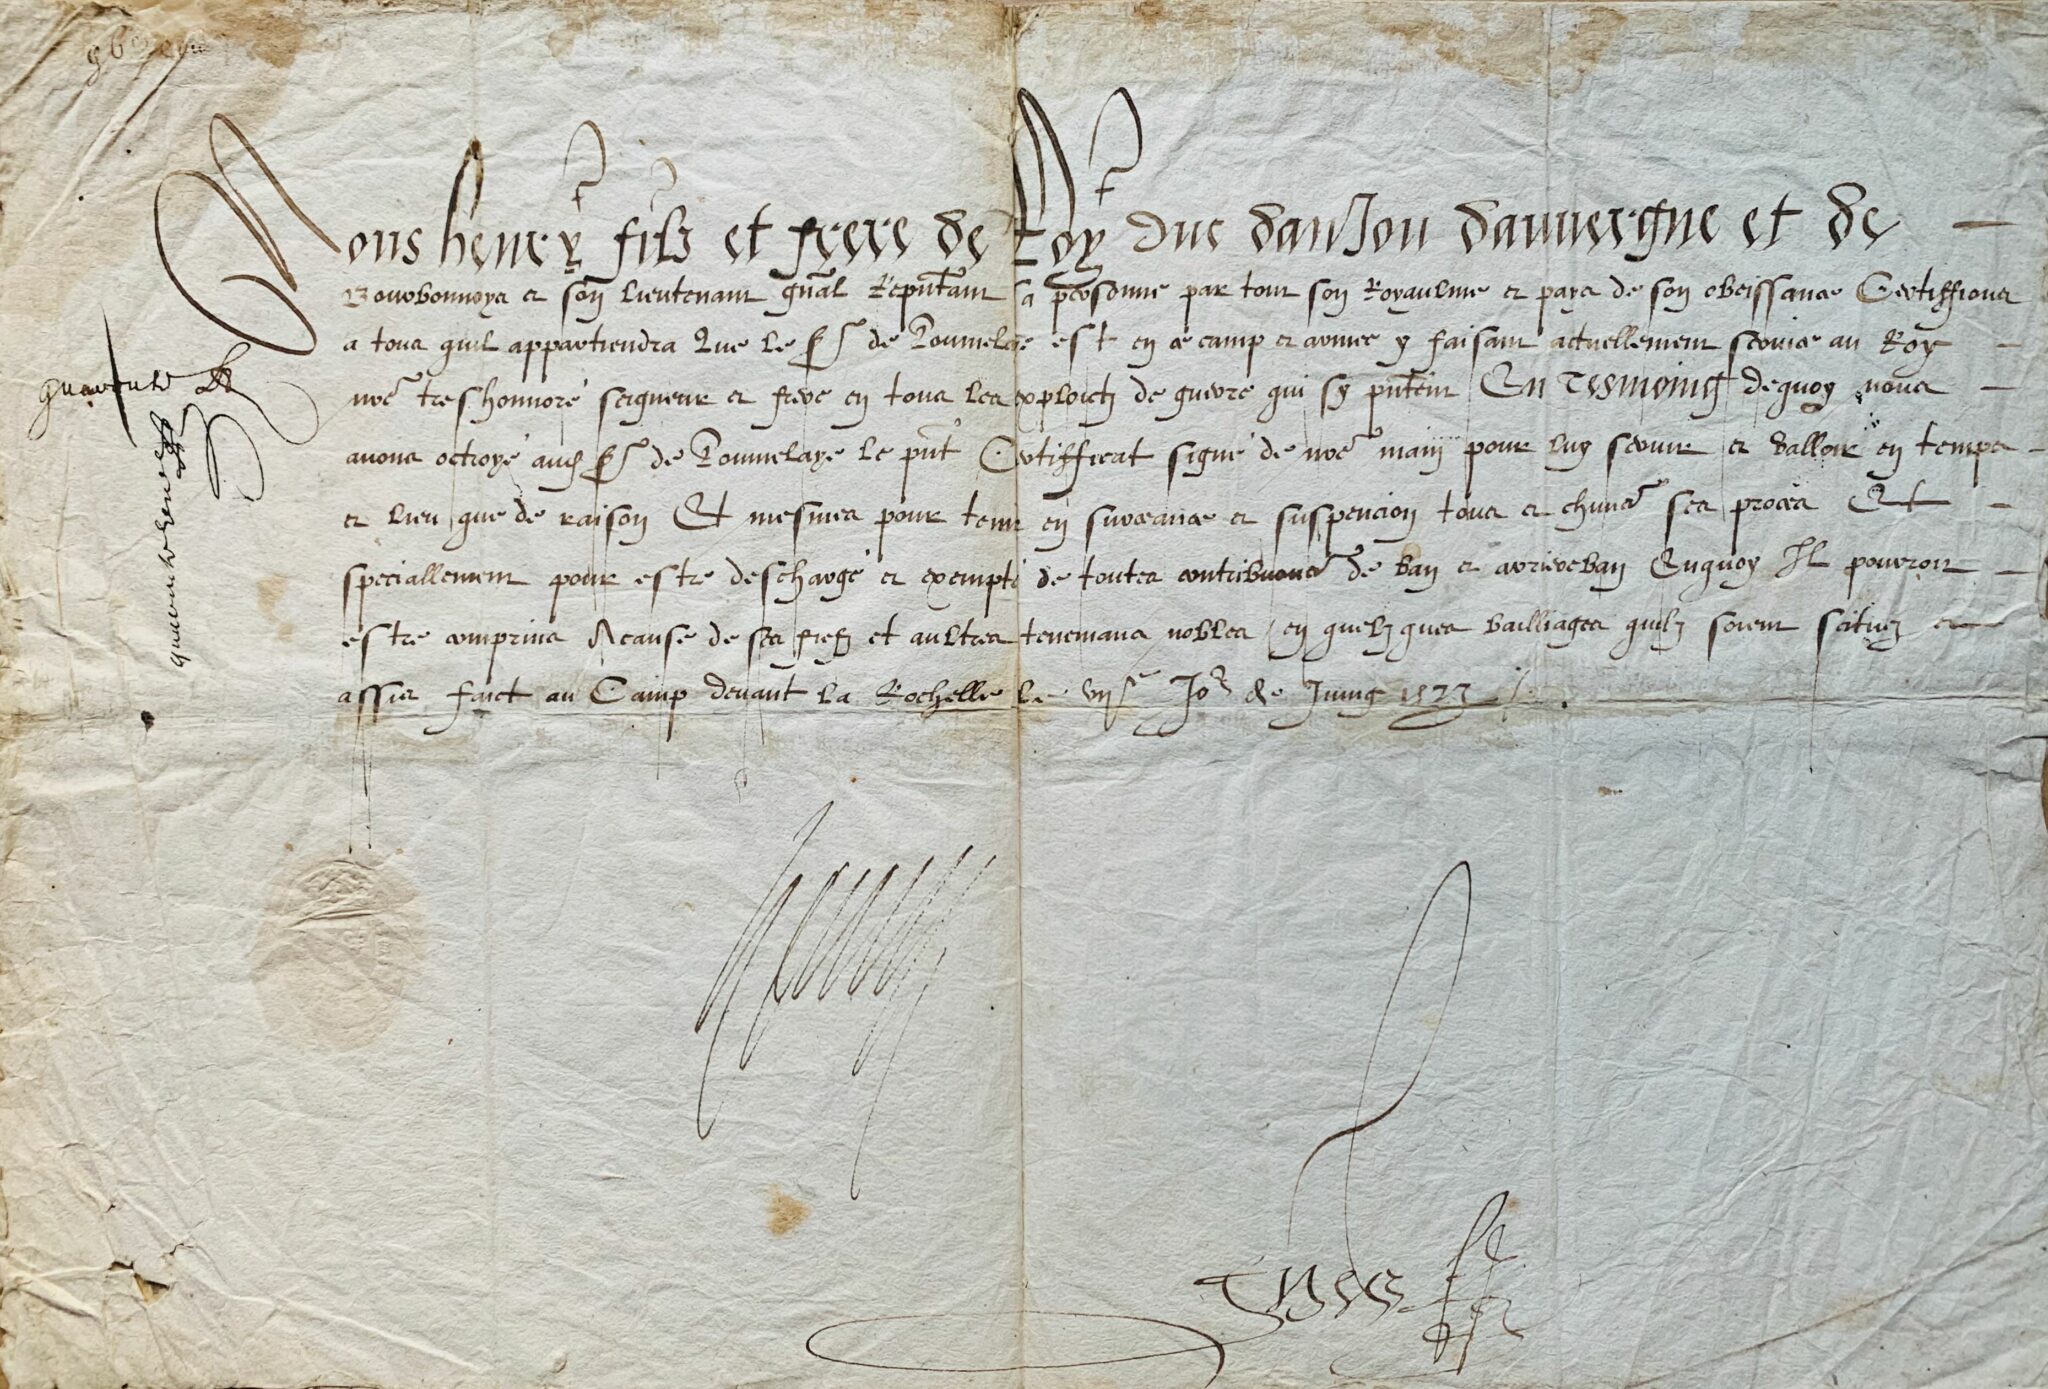 Nous henry filz et frere de Roy duc danjou dauuergne et de
Bourbonnoys et son lieutenant gnal Reputant sa personne par tout son Royaulme et pays de son obeissance Certiffions
a tous quil appartiendra Que le Sr de est en ce camp et armee y faisant actuellement seruice au Roy
nre tres honnoré seigneur et frere en tous les exploictz de guerre qui sy pntent En Tesmoing dequoy nous
auons octroyé aud Sr de le pnt Certifficat signé de nre main pour luy seruir et valloir en temps
et lieu que de raison Et mesmes pour tenir en surceance et suspencion tous et chuns ses proces Et
speciallement pour estre deschargé et exempté de toutes contribuons de ban et arriereban Enquoy Il pourroit
estre comprins A cause de ses fiefz et aultres tenemans nobles en quelzques bailliages quilz soient scituez et
assis faict au Camp deuant la Rochelle le Jor de Juing 1573
Henry